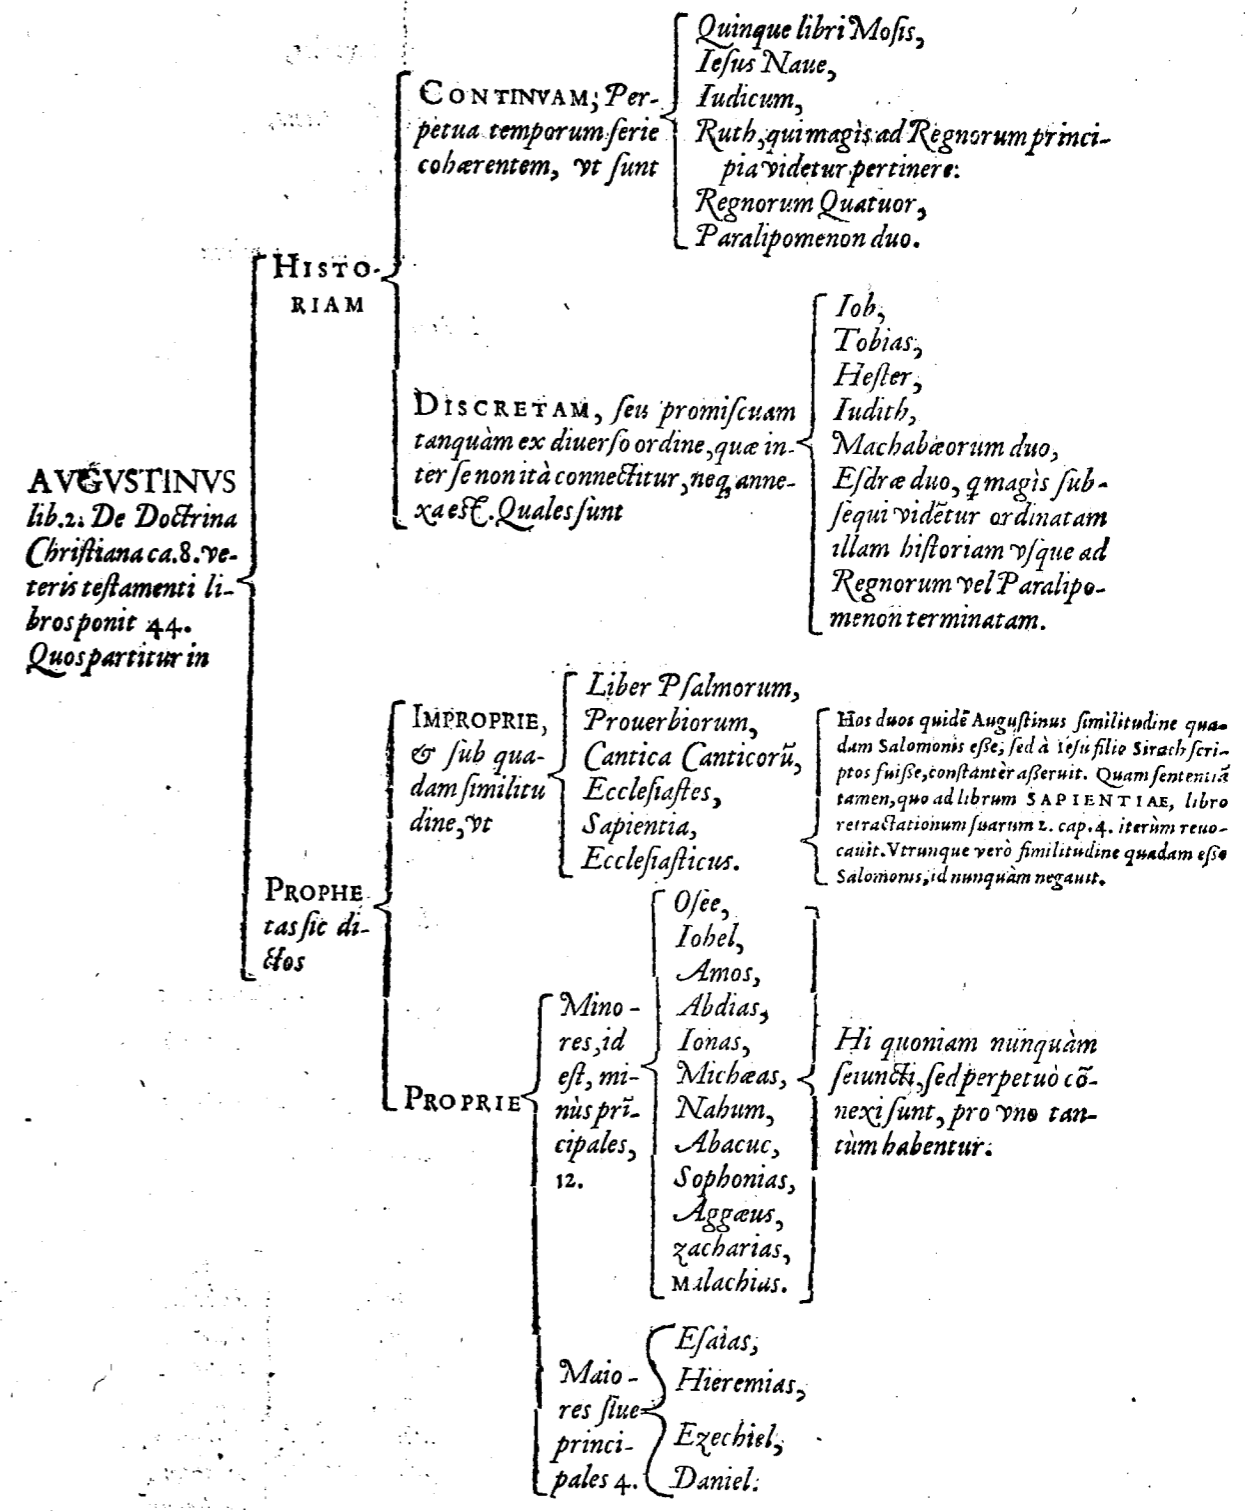 AVGVSTINVS
lib.2. De Doctrina
Chriſtiana ca.8. ve-
teris teſtamenti li-
bros ponit 44.
Quos partitur in
HISTO-
RIAM
CONTINVAM; Per-
petua temporum ſerie
cohærentem, vt ſunt
Quinque libri Moſis,
Ieſus Naue,
Iudicum,
Ruth, qui magìs ad Regnorum princi-
pia videtur pertinere:
Regnorum Quatuor,
Paralipomenon duo.
DISCRETAM, ſeu promiſcuam
tanquàm ex diuerſo ordine, quæ in-
ter ſe non ità connectitur, neq; anne-
xa eſt. Quales ſunt
Iob,
Tobias,
Heſter,
Iudith,
Machabæorum duo,
Eſdræ duo, q magìs ſub-
ſequi vidētur ordinatam
illam hiſtoriam vſque ad
Regnorum vel Paralipo-
menon terminatam.
PROPHE
tas ſic di-
ctos
IMPROPRIE,
& ſub qua-
dam ſimilitu
dine, vt
Liber Pſalmorum,
Prouerbiorum,
Cantica Canticorū,
Eccleſiaſtes,
Sapientia,
Eccleſiaſticus.
Hos duos quidē Auguſtinus ſimilitudine qua-
dam Salomonis eſſe, ſed à Ieſu filio Sirach ſcri-
ptos fuiſſe, conſtantèr aſſeruit. Quam ſententiā
tamen, quo ad librum SAPIENTIAE, libro
retractationum ſuarum 2. cap. 4. iterùm reuo-
cauit. Vtrunque verò ſimilitudine quadam eſſe
Salomonis, id nunquàm negauit.
PROPRIE
Mino-
res, id
eſt, mi-
nùs prī-
cipales,
12.
Oſee,
Iohel,
Amos,
Abdias,
Ionas,
Michæas,
Nahum,
Abacuc,
Sophonias,
Aggæus,
zacharias,
Malachias.
Hi quoniam nunquàm
ſeiuncti, ſed perpetuò cō-
nexi ſunt, pro vno tan-
tùm habentur.
Maio-
res ſiue
princi-
pales 4.
Eſaias,
Hieremias,
Ezechiel,
Daniel.